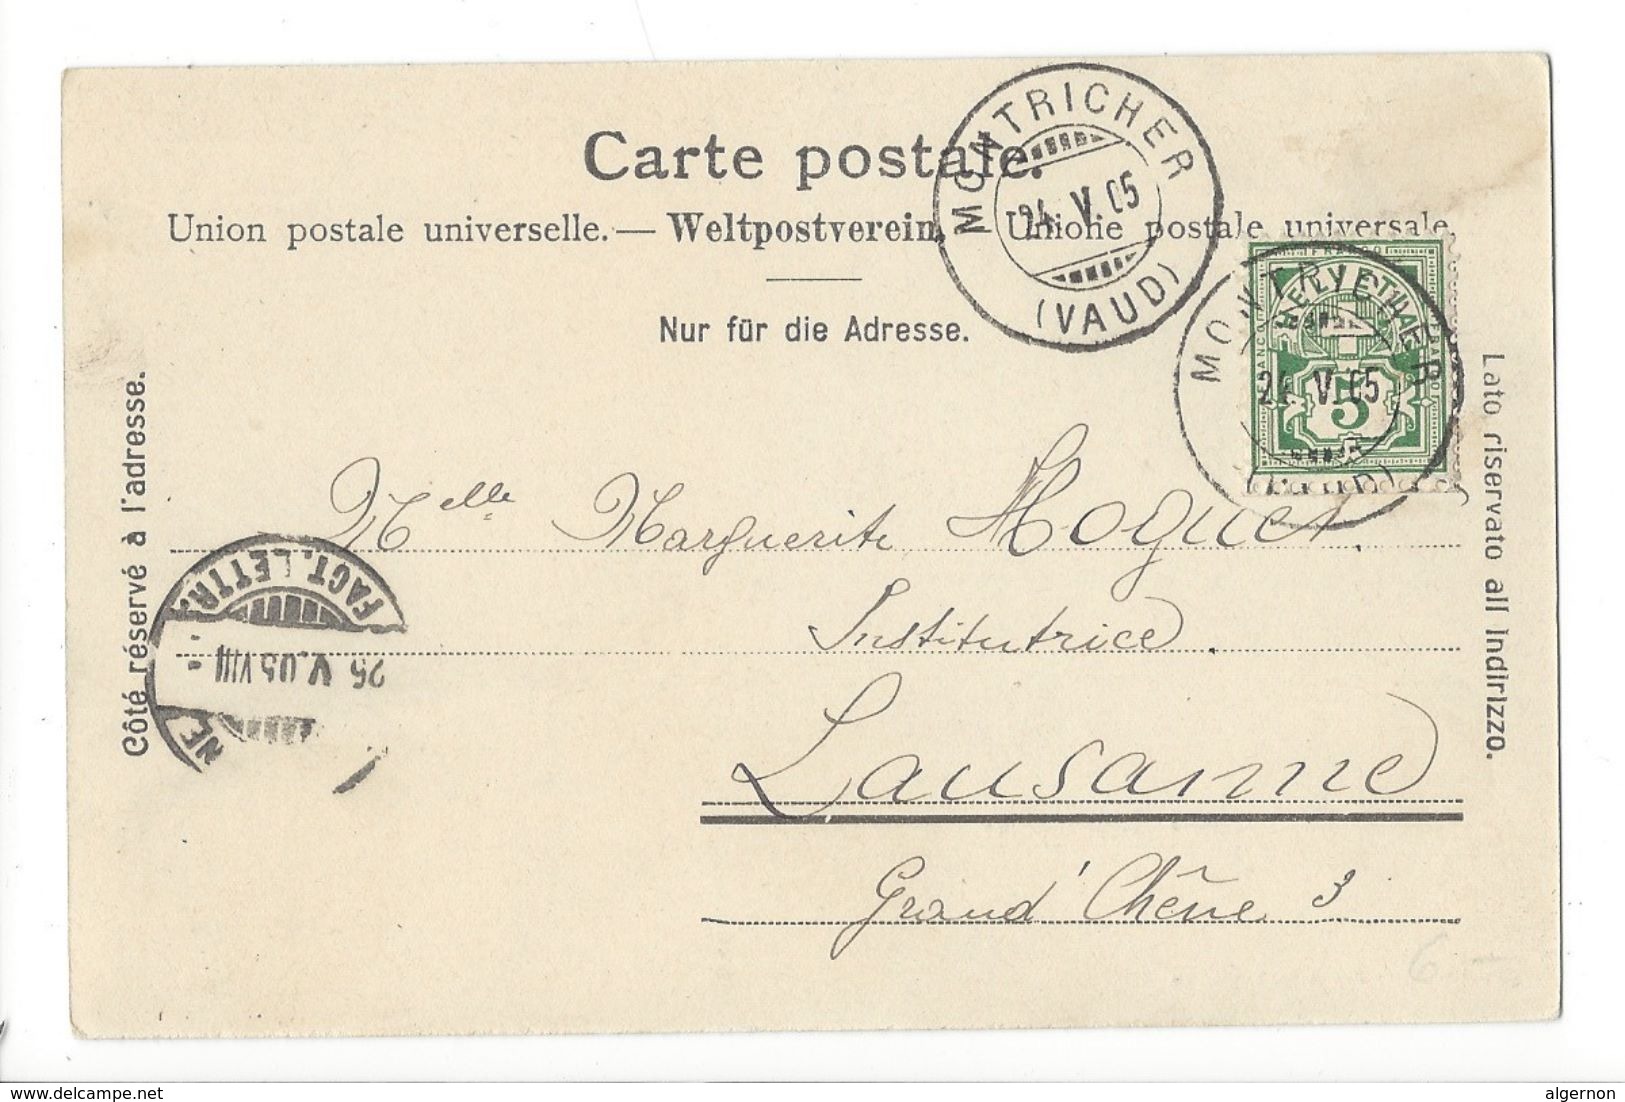 Carte postale.
Union postale universelle. — Weltpostverein. — Unione postale universale.
Nur für die Adresse.
Côté réservé à l'adresse.
Lato riservato all Indirizzo.
MONTRICHER
24. V. 05
(VAUD)
FRANCO
HELVETIA
5
MONTRICHER
24. V. 05
FACT. LETTR.
25 V. 05 VIII
NE
Melle Marguerite
Institutrice.
Lausanne
Grand' Chêne 3
6 –
www.delcampe.net
algernon